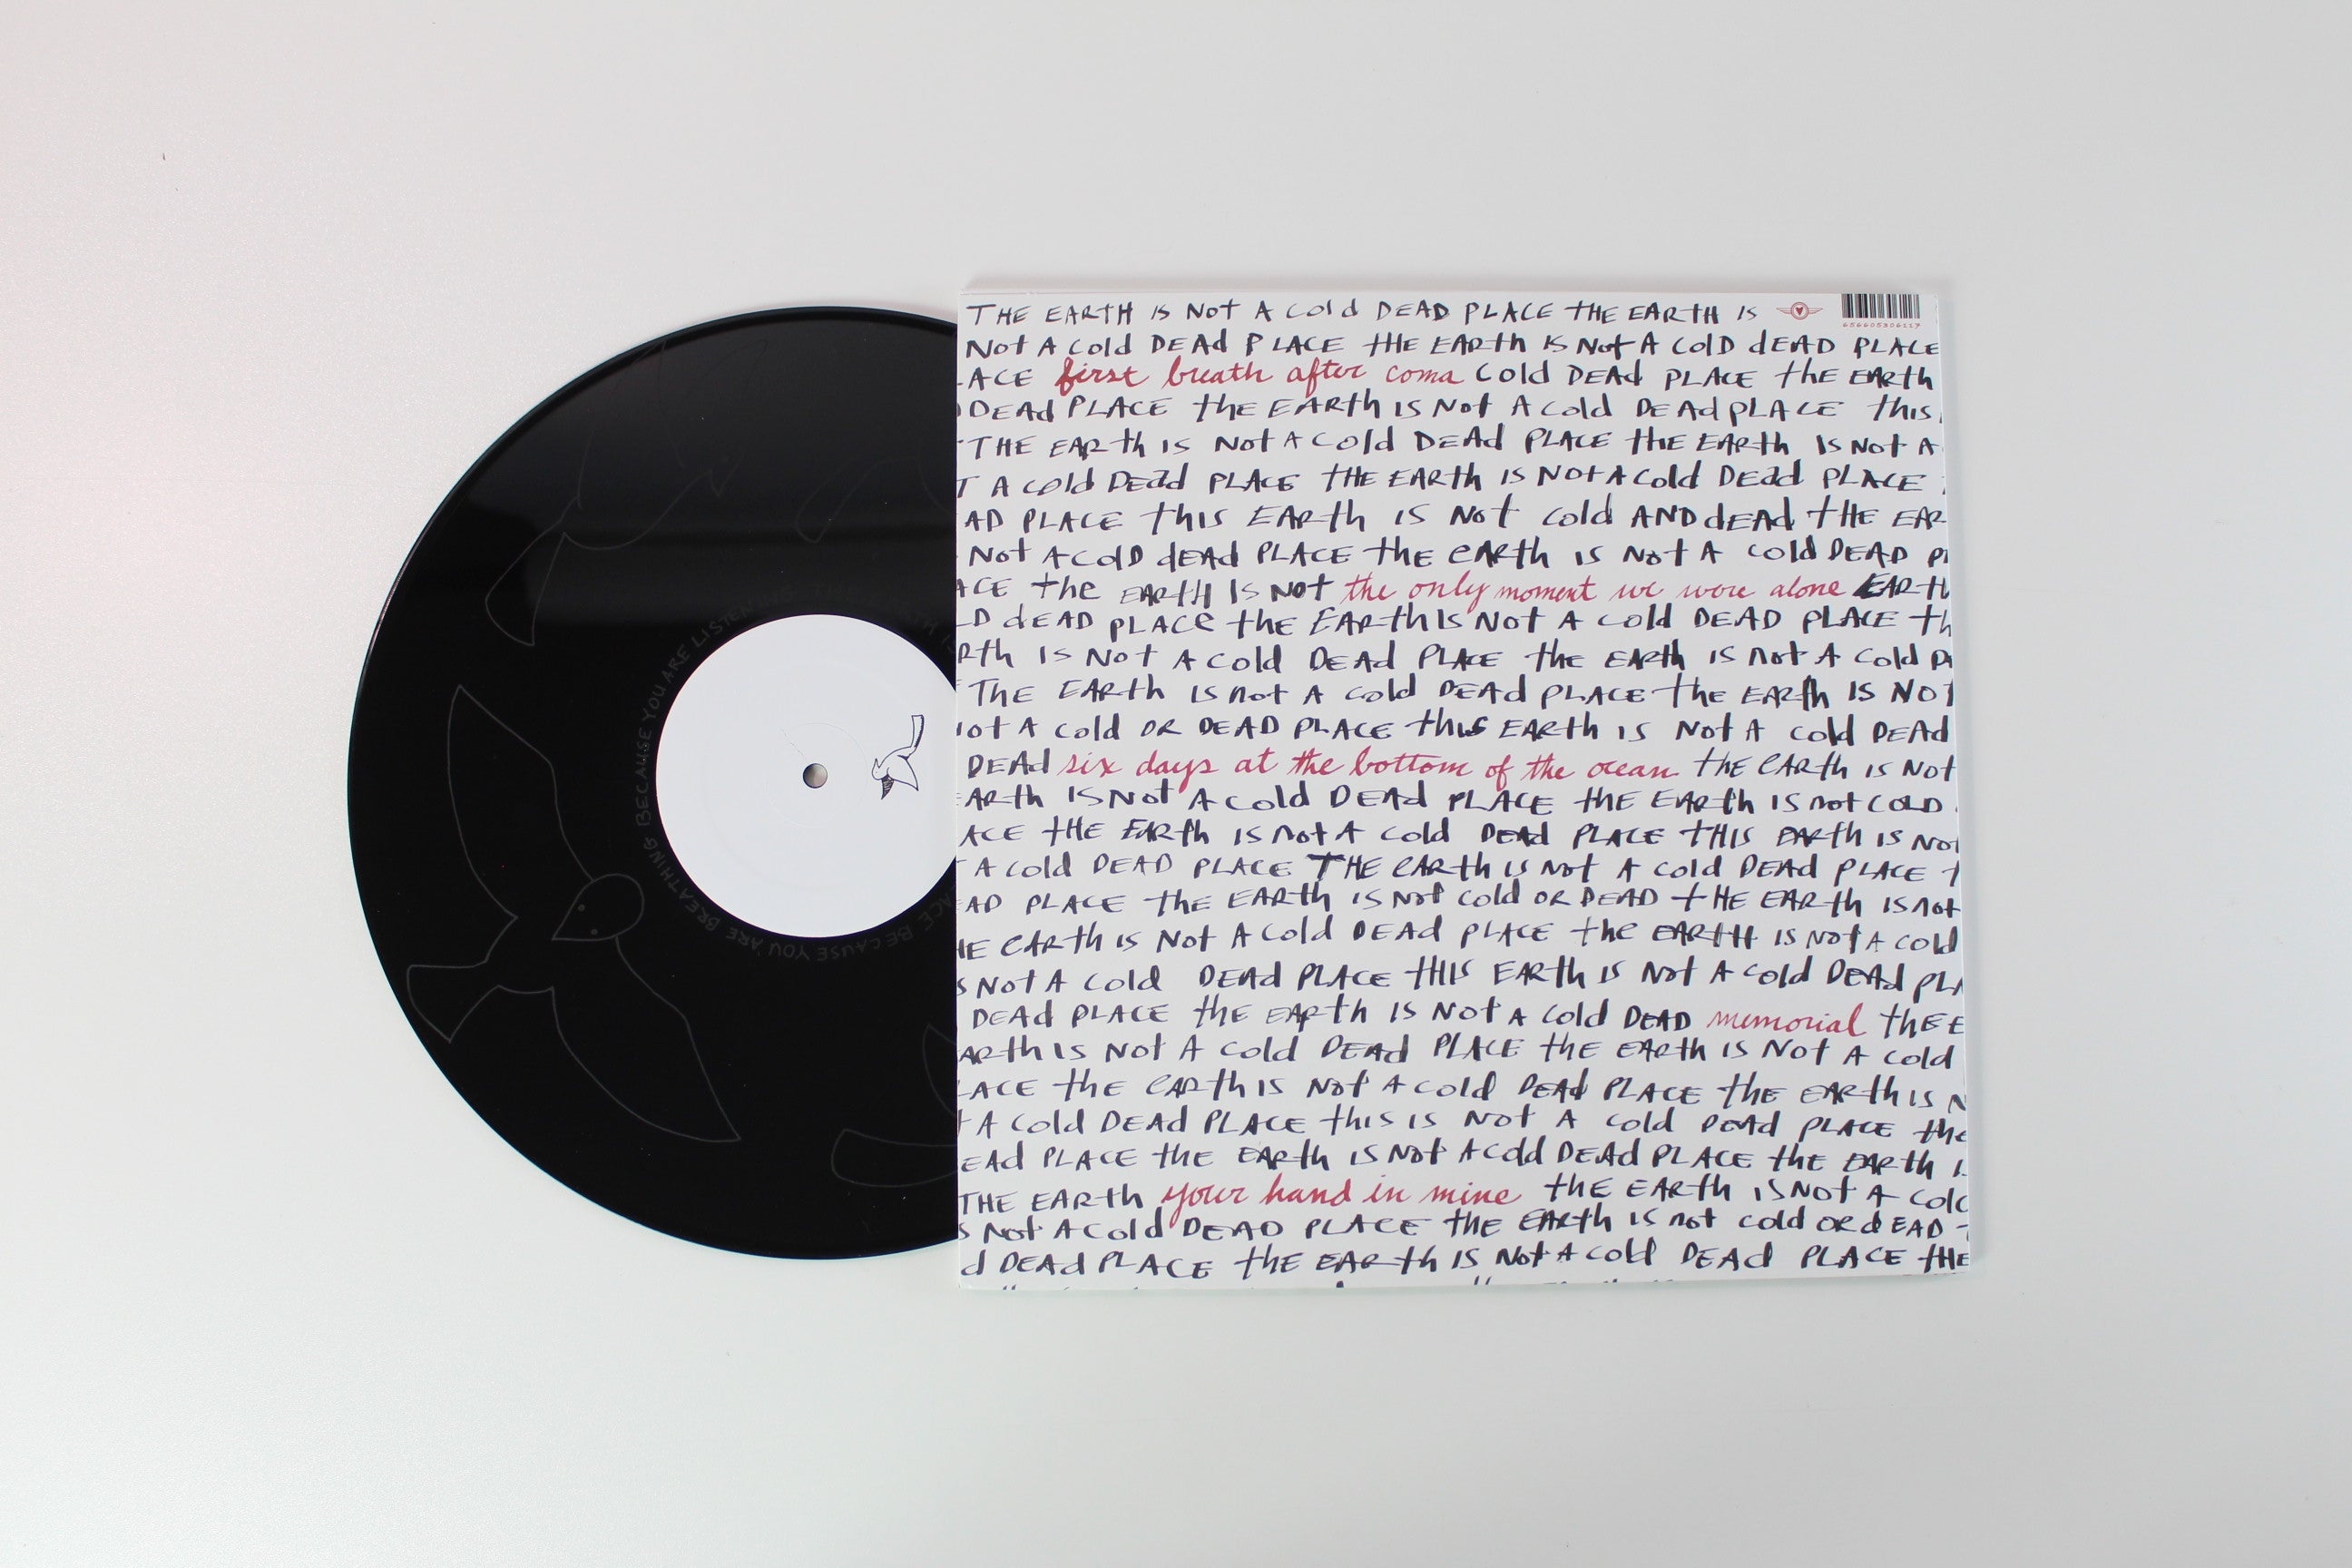 THE EARTH IS NOT A COLD DEAD PLACE THE EARTH IS
656605306117
NOT A COLD DEAD PLACE THE EARTH IS NOT A COLD DEAD PLACE
ACE first breath after coma COLD DEAD PLACE THE EARTH
DEAD PLACE THE EARTH IS NOT A COLD DEAD PLACE THIS
THE EARTH IS NOT A COLD DEAD PLACE THE EARTH IS NOT A
T A COLD DEAD PLACE THE EARTH IS NOT A COLD DEAD PLACE
AD PLACE THIS EARTH IS NOT COLD AND DEAD THE EAR
NOT A COLD DEAD PLACE THE EARTH IS NOT A COLD DEAD PL
ACE THE EARTH IS NOT the only moment we were alone EARTH
D DEAD PLACE THE EARTH IS NOT A COLD DEAD PLACE TH
RTH IS NOT A COLD DEAD PLACE THE EARTH IS NOT A COLD D
THE EARTH IS NOT A COLD DEAD PLACE THE EARTH IS NOT
NOT A COLD OR DEAD PLACE THIS EARTH IS NOT A COLD DEAD
DEAD six days at the bottom of the ocean THE EARTH IS NOT
EARTH IS NOT A COLD DEAD PLACE THE EARTH IS NOT COLD
ACE THE EARTH IS NOT A COLD DEAD PLACE THIS EARTH IS NOT
A COLD DEAD PLACE THE EARTH IS NOT A COLD DEAD PLACE T
EAD PLACE THE EARTH IS NOT COLD OR DEAD THE EARTH IS NOT
HE EARTH IS NOT A COLD DEAD PLACE THE EARTH IS NOT A COLD
S NOT A COLD DEAD PLACE THIS EARTH IS NOT A COLD DEAD PLA
DEAD PLACE THE EARTH IS NOT A COLD DEAD memorial THE E
ARTH IS NOT A COLD DEAD PLACE THE EARTH IS NOT A COLD
LACE THE EARTH IS NOT A COLD DEAD PLACE THE EARTH IS N
T A COLD DEAD PLACE THIS IS NOT A COLD DEAD PLACE THE
EAD PLACE THE EARTH IS NOT A COLD DEAD PLACE THE EARTH I
THE EARTH your hand in mine THE EARTH IS NOT A COLD
S NOT A COLD DEAD PLACE THE EARTH IS NOT COLD OR DEAD
D DEAD PLACE THE EARTH IS NOT A COLD DEAD PLACE THE
BECAUSE YOU ARE BREATHING BECAUSE YOU ARE LISTENING